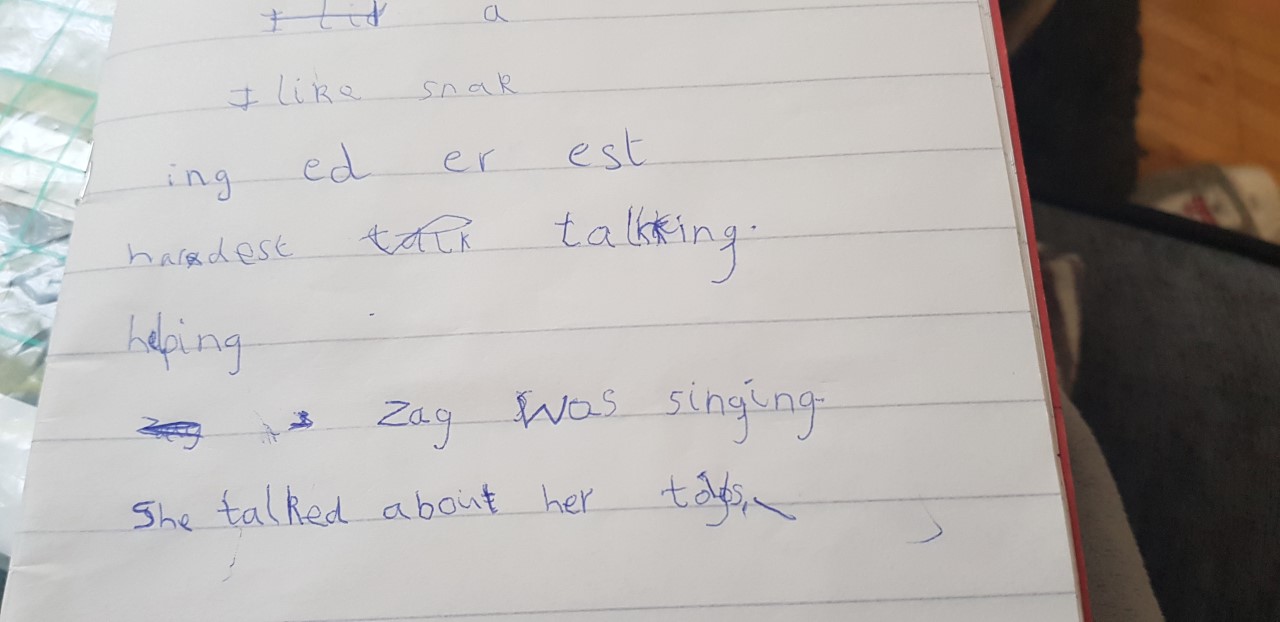 a
I like snak
ing ed er est
hardest talk talking.
helping
Zag was singing.
She talked about her toys.